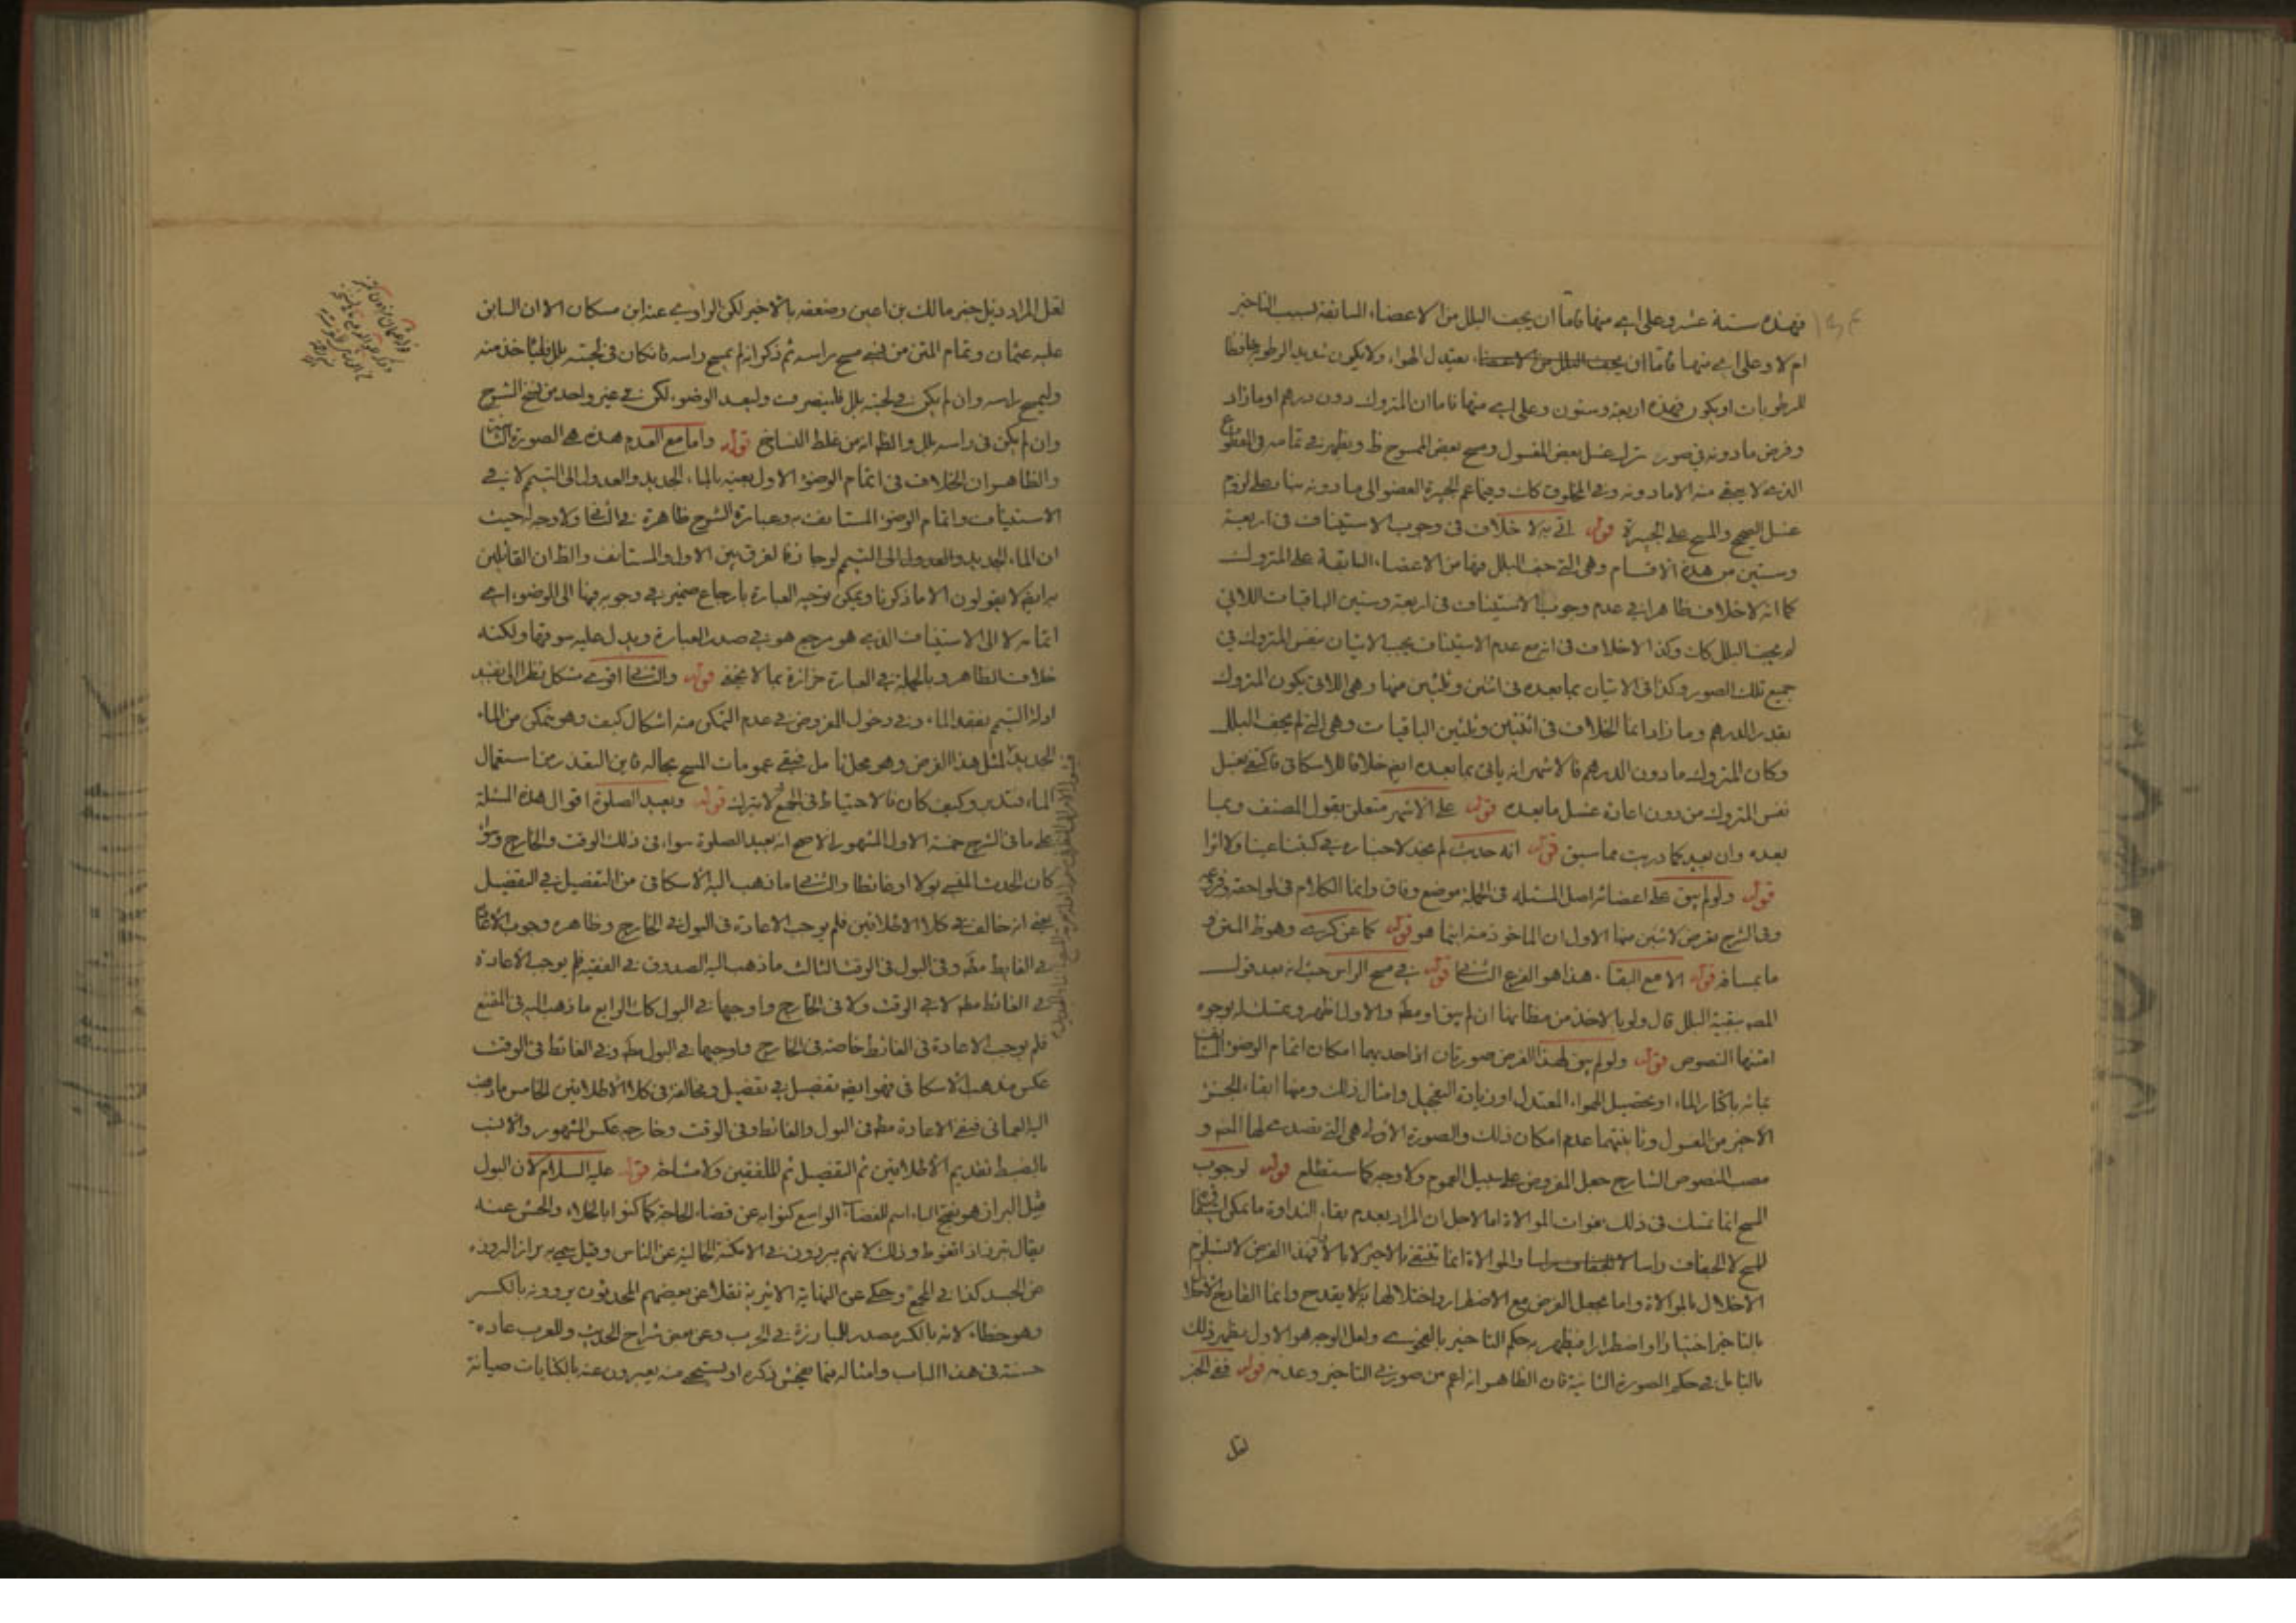 فهذه ستة عشر وعلى اي منها فاما ان يجف البلل من الاعضاء السابقة لسبب التاخير
ام لا وعلى اي منها فاما ان يجف البلل من الاعضاء بعتدل الهواء ولا يكون شديد الرطوبة حافظا
للرطوبات او يكون فهذه اربعة وستون وعلى اي منها فاما ان المتروك دون درهم او ما زاد
وفرض ما دونه في صور ترك غسل بعض المغسول ومسح بعض الممسوح ظ ويظهر في تمامه في المقطوع
الذي لا يبقى منه الا ما دونه وفي المخلوق كك وفيما عم الجبيرة العضو الى ما دونه بناء على لزوم
غسل الصحيح والمسح على الجبيرة قوله اتى به لا خلاف في وجوب الاستيناف في اربعة
وستين من هذه الاقسام وهى التي جف البلل فيها من الاعضاء السابقة على المتروك
كما انه لا خلاف ظاهرا في عدم وجوب الاستيناف في اربعة وستين الباقيات اللاتي
لم يجف البلل كك وكذا لا خلاف في انه مع عدم الاستيناف يجب الاتيان بنفس المتروك في
جميع تلك الصور وكذا في الاتيان بما بعده في اثنين وثلثين منها وهى اللاتي يكون المتروك
بقدر الدرهم وما زاد انما الخلاف في اثنتين وثلثين الباقيات وهى التي لم يجف البلل
وكان المتروك ما دون الدرهم فالاشهر انه ياتى بما بعده ايضا خلافا للاسكافى فاكتفى بغسل
نفس المتروك من دون اعادة غسل ما بعده قوله على الاشهر متعلق بقول المصنف وبما
بعده وان بعيد كما دريت مما سبق قوله انه حديث لم نجد لاخباره في كتبنا عينا ولا اثرا
قوله ولو لم يبق على اعضائه اصل المسئلة في الجملة موضع وفاق وانما الكلام في لواحقه وفروعه
وفي الشرح تعرض لاثنين منها الاول ان الماخوذ منه ايما هو قوله كما عن كريه وهو ظ المتن و
ما بمساقه قوله الا مع البقاء هذا هو الفرع الثاني قوله في مسح الراس حيث انه بعد قول
المصه ببقية البلل قال ولو بالاخذ من مظانها ان لم يبق او مطه والاول اظهر وتمسك له بوجوه
امتنها النصوص قوله ولو لم يبق لهذا الفرض صورتان احداهما امكان اتمام الوضوء الثاني
بمائه باكثار الماء او تحصيل الهواء المعتدل او زيادة التعجيل وامثال ذلك ومنها ابقاء الجزء
الاخير من المغسول وثانيتهما عدم امكان ذلك والصورة الاولى هى التي تصدى لها المصه و
مصب النصوص الشارح جعل المفروض على سبيل العموم ولا وجه كما ستطلع قوله لوجوب
المسح انما تمسك في ذلك بفوات الموالاة اما لاجل ان المراد بعدم بقاء النداوة ما تمكن
المسح لا الجفاف راسا لا الجفاف راسا والموالاة انما تنتفى بالاخير لا بالاول فهذا الفرض لا يستلزم
الاخلال بالموالاة واما بجعل الفرض مع الاضطرار واختلالها به لا يقدح وانما القادح الاخلال
بالتاخير اختيارا او اضطرارا فيظهر به حكم التاخير بالفحوى ولعل الوجه هو الاول يظهر ذلك
بالتامل في حكم الصورة الثانية فان الظاهر انه اعم من صورتى التاخير وعدمه قوله ففى الخبر
لعل
لعل المراد ذيل خبر مالك بن اعين وضعفه بالاخير لكن الراوي عنه ابن مسكان الا ان السابق
عليه عثمان وتمام المتن من نسى مسح راسه ثم ذكر انه لم يمسح راسه فان كان في لحيته بلل فلياخذ منه
وليمسح راسه وان لم يكن في لحيته بلل فلينصرف وليعد الوضوء لكن في غير واحد من نسخ الشرح
وان لم يكن في راسه بلل والظ انه من غلط الناسخ قوله واما مع العدم هذه هى الصورة الثانية
والظاهر ان الخلاف في اتمام الوضوء الاول بعينه بالماء الجديد والعدول الى التيمم لا في
الاستيناف واتمام الوضوء المستانف به وعبارة الشرح ظاهرة في الثاني ولا وجه له حيث
ان الماء الجديد والعدول الى التيمم لو جاز فلا فرق بين الاول والمستانف والظ ان القائلين
به ايضا لا يقولون الا ما ذكرنا ويمكن توجيه العبارة بارجاع ضمير في وجوبه فيها الى الوضوء اي
اتمامه لا الى الاستيناف الذي هو مرجع هو في صدر العبارة ويدل عليه سوقها ولكنه
خلاف الظاهر وبالجملة في العبارة حزازة بما لا يخفى قوله والثاني اقوى مشكل نظر الى تقيد
ادلة التيمم بفقد الماء وفي دخول المفروض في عدم التمكن منه اشكال كيف وهو يتمكن من الماء
الجديد لمثل هذا الفرض وهو محل تامل فيبقى عمومات المسح بحاله فاين التعذر من استعمال
الماء فتدبر وكيف كان فالاحتياط في الجمع لا يترك قوله ويعيد الصلوة اقوال هذه المسئلة
على ما في الشرح خمسة الاول المشهور الاصح انه يعيد الصلوة سواء في ذلك الوقت والخارج وسواء
كان الحدث المنسي بولا او غائطا والثاني ما ذهب اليه الاسكافى من التفصيل في التفصيل
يعنى انه خالف في كلا الاطلاقين فلم يوجب الاعادة في البول في الخارج وظاهره وجوب الاعادة
في الغايط مطه وفي البول في الوقت الثالث ما ذهب اليه الصدوق في الفقيه فلم يوجب الاعادة
في الغائط مطه لا في الوقت ولا في الخارج واوجبها في البول كك الرابع ما ذهب اليه في المقنع
فلم يوجب الاعادة في الغائط خاصة في الخارج واوجبها في البول مطه وفي الغائط في الوقت
عكس مذهب الاسكافى فهو ايضا تفصيل في تفصيل ومخالفة في كلا الاطلاقين الخامس ما ذهب
اليه العماني فنفى الاعادة مطه في البول والغائط وفي الوقت وخارجه عكس المشهور والانسب
بالضبط تقديم الاطلاقين ثم التفصيل ثم الملفقين ولا مشاحة قوله عليه السلام لان البول
مثل البراز هو بفتح الباء اسم للفضاء الواسع كنوا به عن قضاء الحاجة كما كنوا بالخلاء والحش عنه
يقال تبرز اذا تغوط وذلك لانهم يبرزون في الامكنة الخالية عن الناس وقيل سمى به براز البروزه
من الجسد كذا في المجمع وحكى عن النهاية الاثيرية نقلا عن بعضهم المحدثون يروونه بالكسر
وهو خطاء لانه بالكسر مصدر المبارزة في الحرب وعن بعض شراح الحديث وللعرب عادة
حسنة في هذا الباب وامثاله فيما يفحش ذكره او يستحيى منه يعبرون عنه بالكنايات صيانة